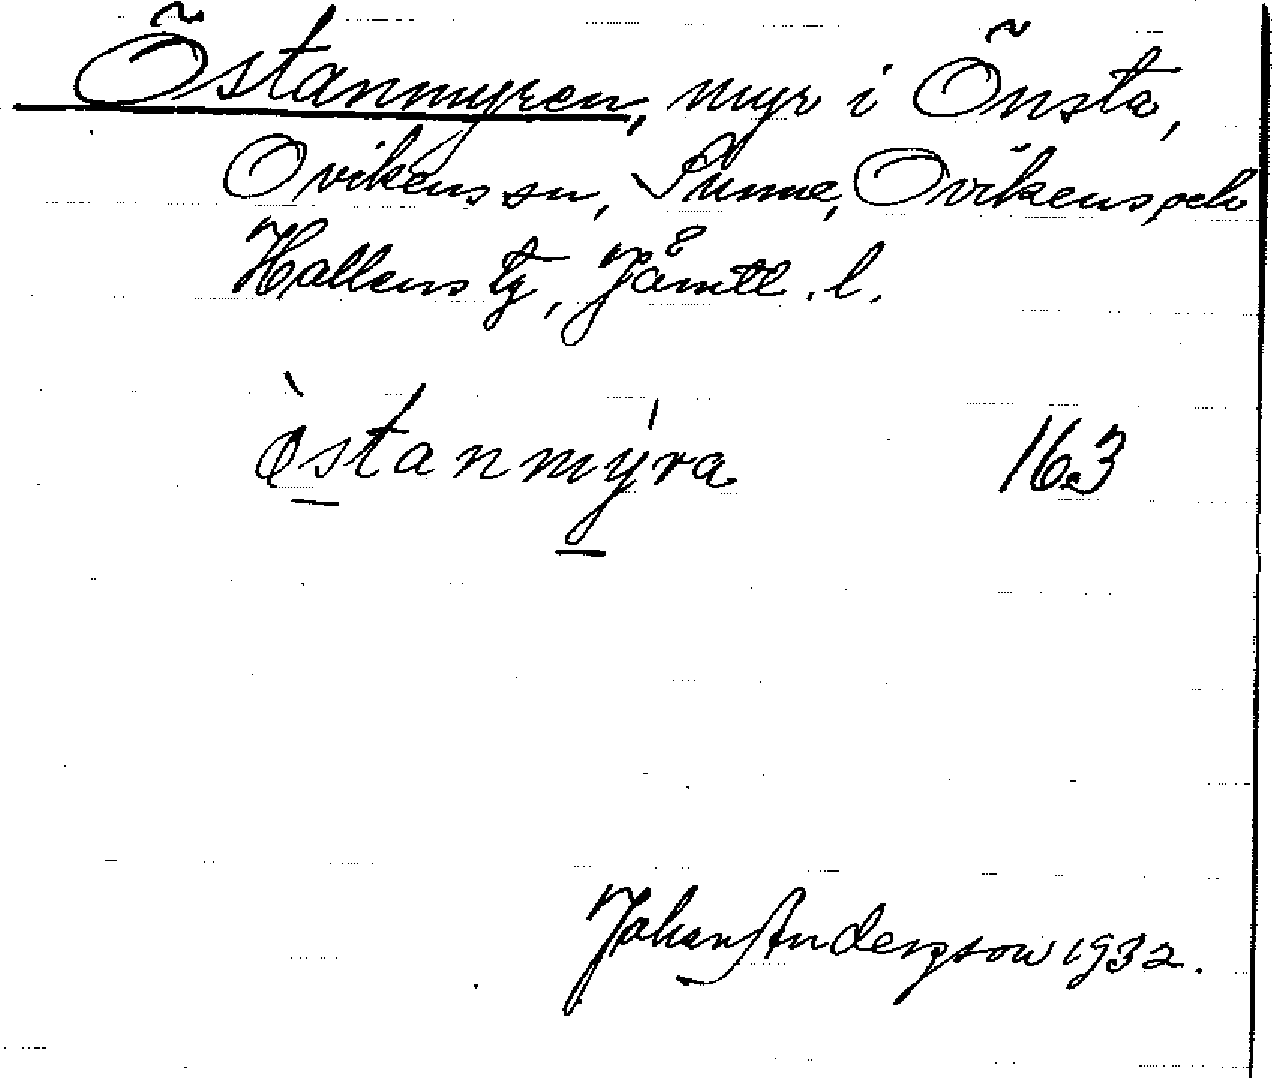 Östanmyren, myr i Önsta,
Ovikens sn, Sunne, Ovikens och
Hallens tg, Jämtl. l.
òstanmýra 163
Johan Andersson 1932.